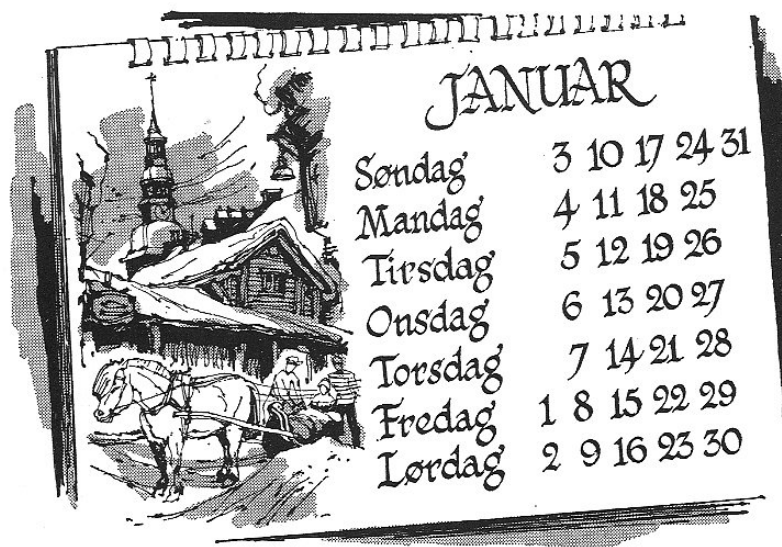 JANUAR
Søndag 3 10 17 24 31
Mandag 4 11 18 25
Tirsdag 5 12 19 26
Onsdag 6 13 20 27
Torsdag 7 14 21 28
Fredag 1 8 15 22 29
Lørdag 2 9 16 23 30